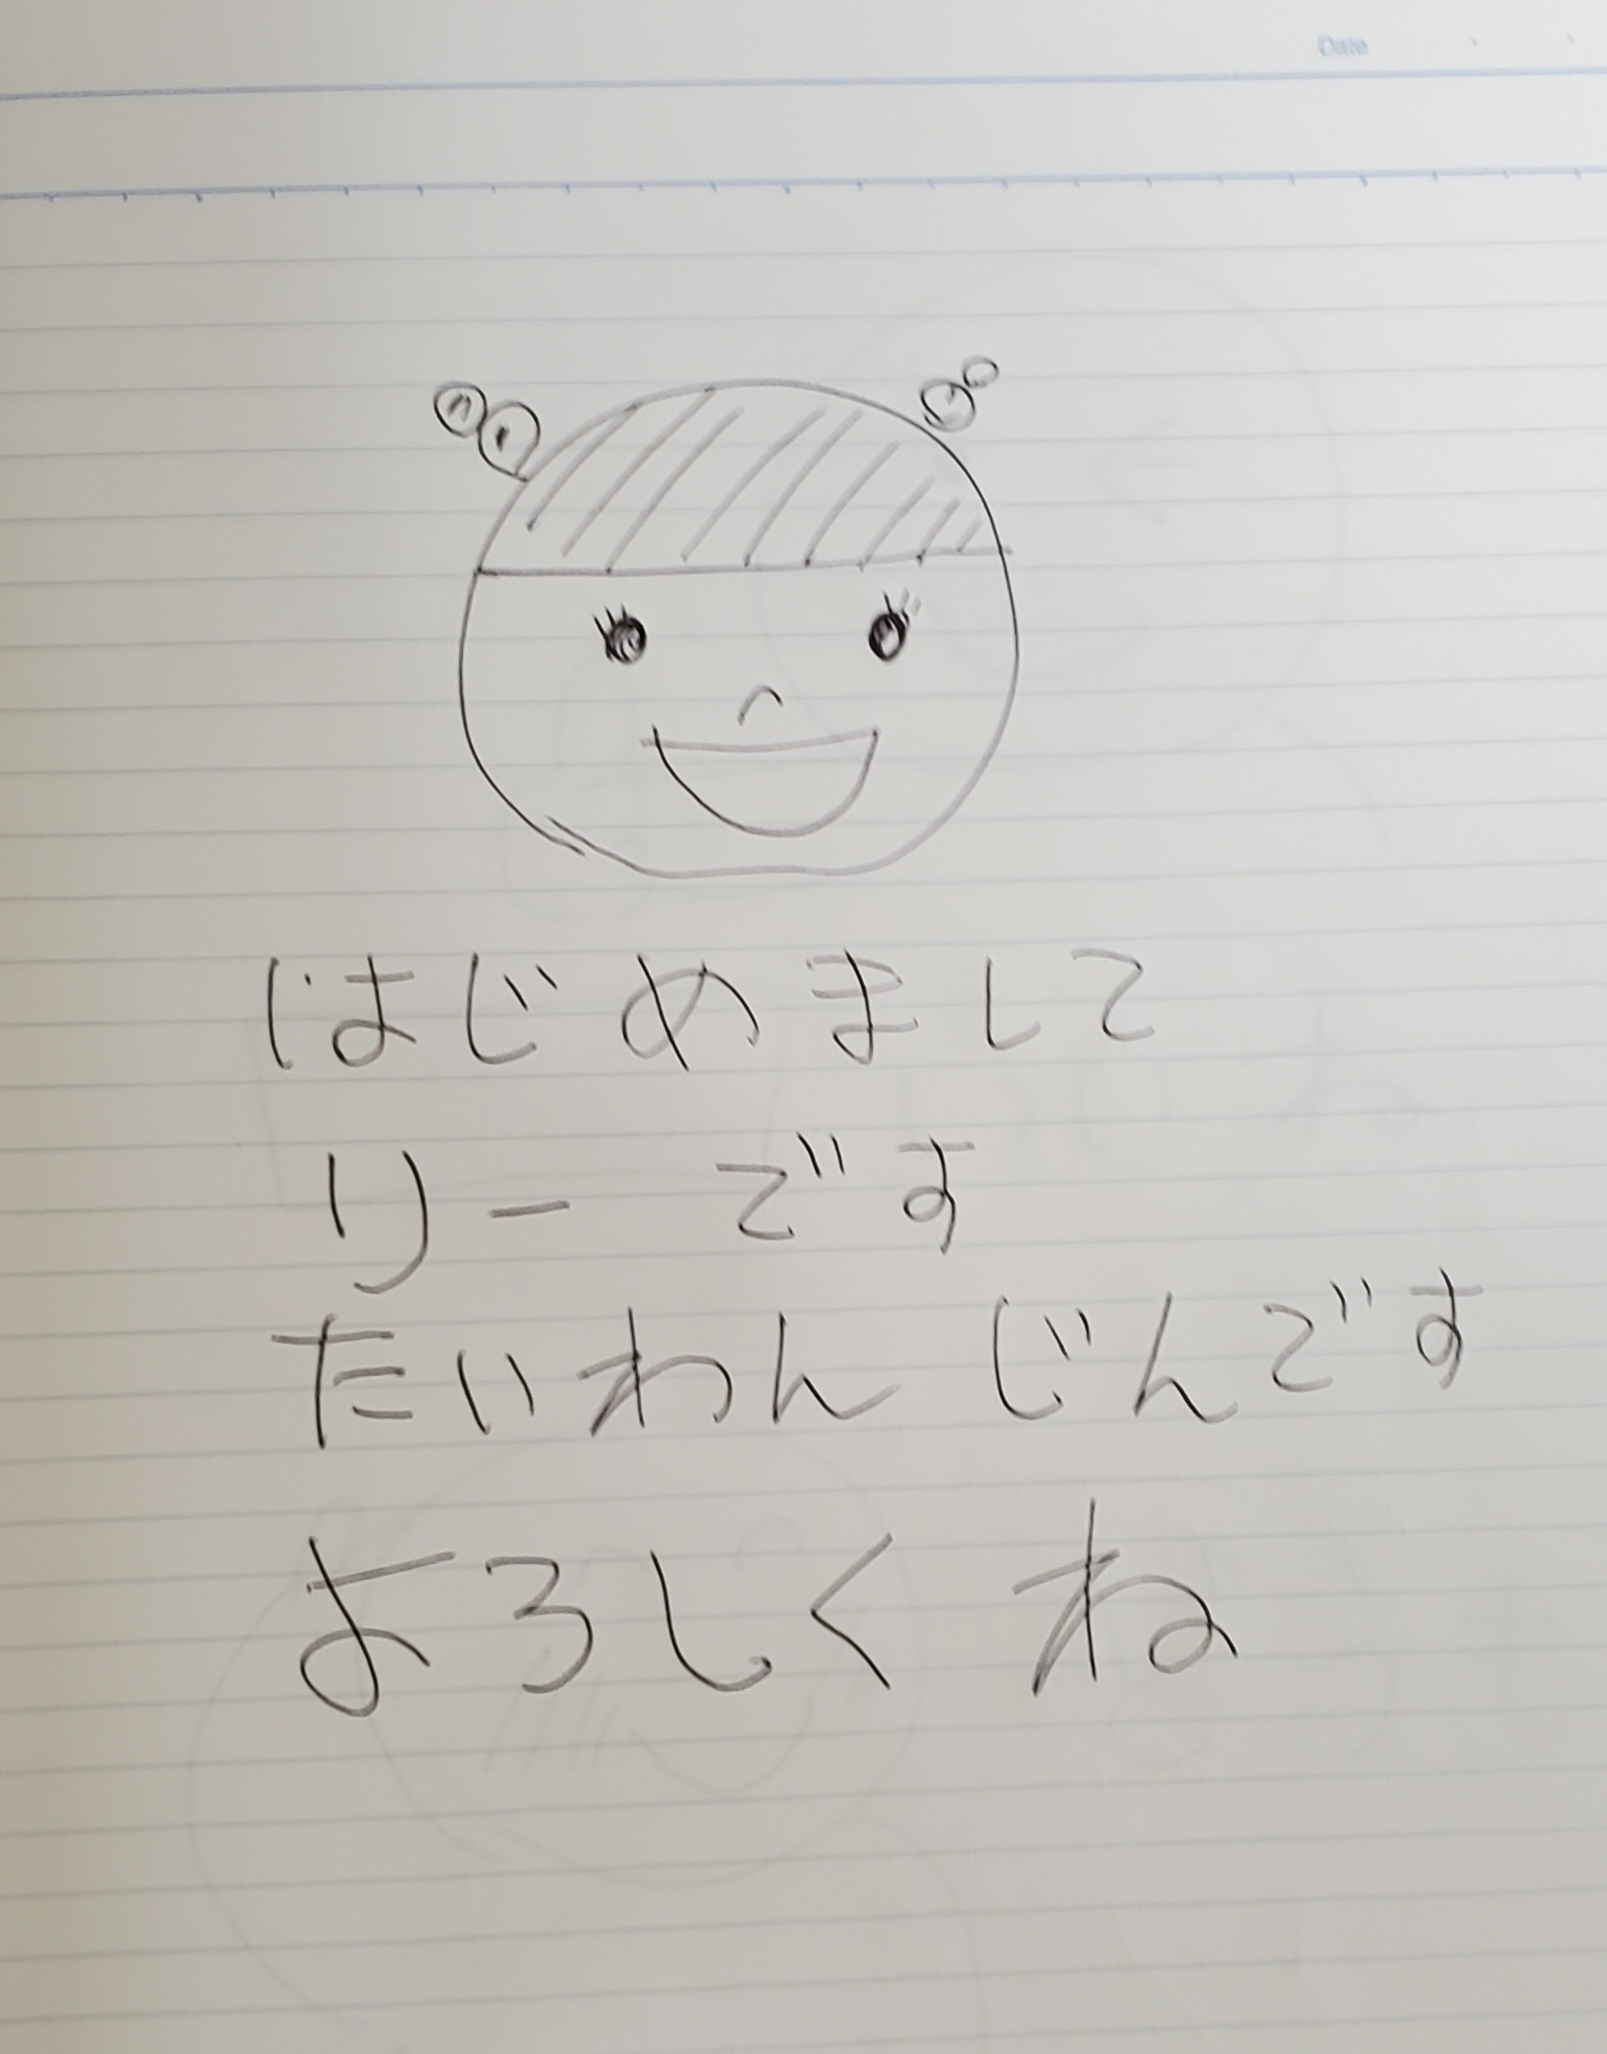 Date
はじめまして
りーです
たいわんじんです
よろしくね